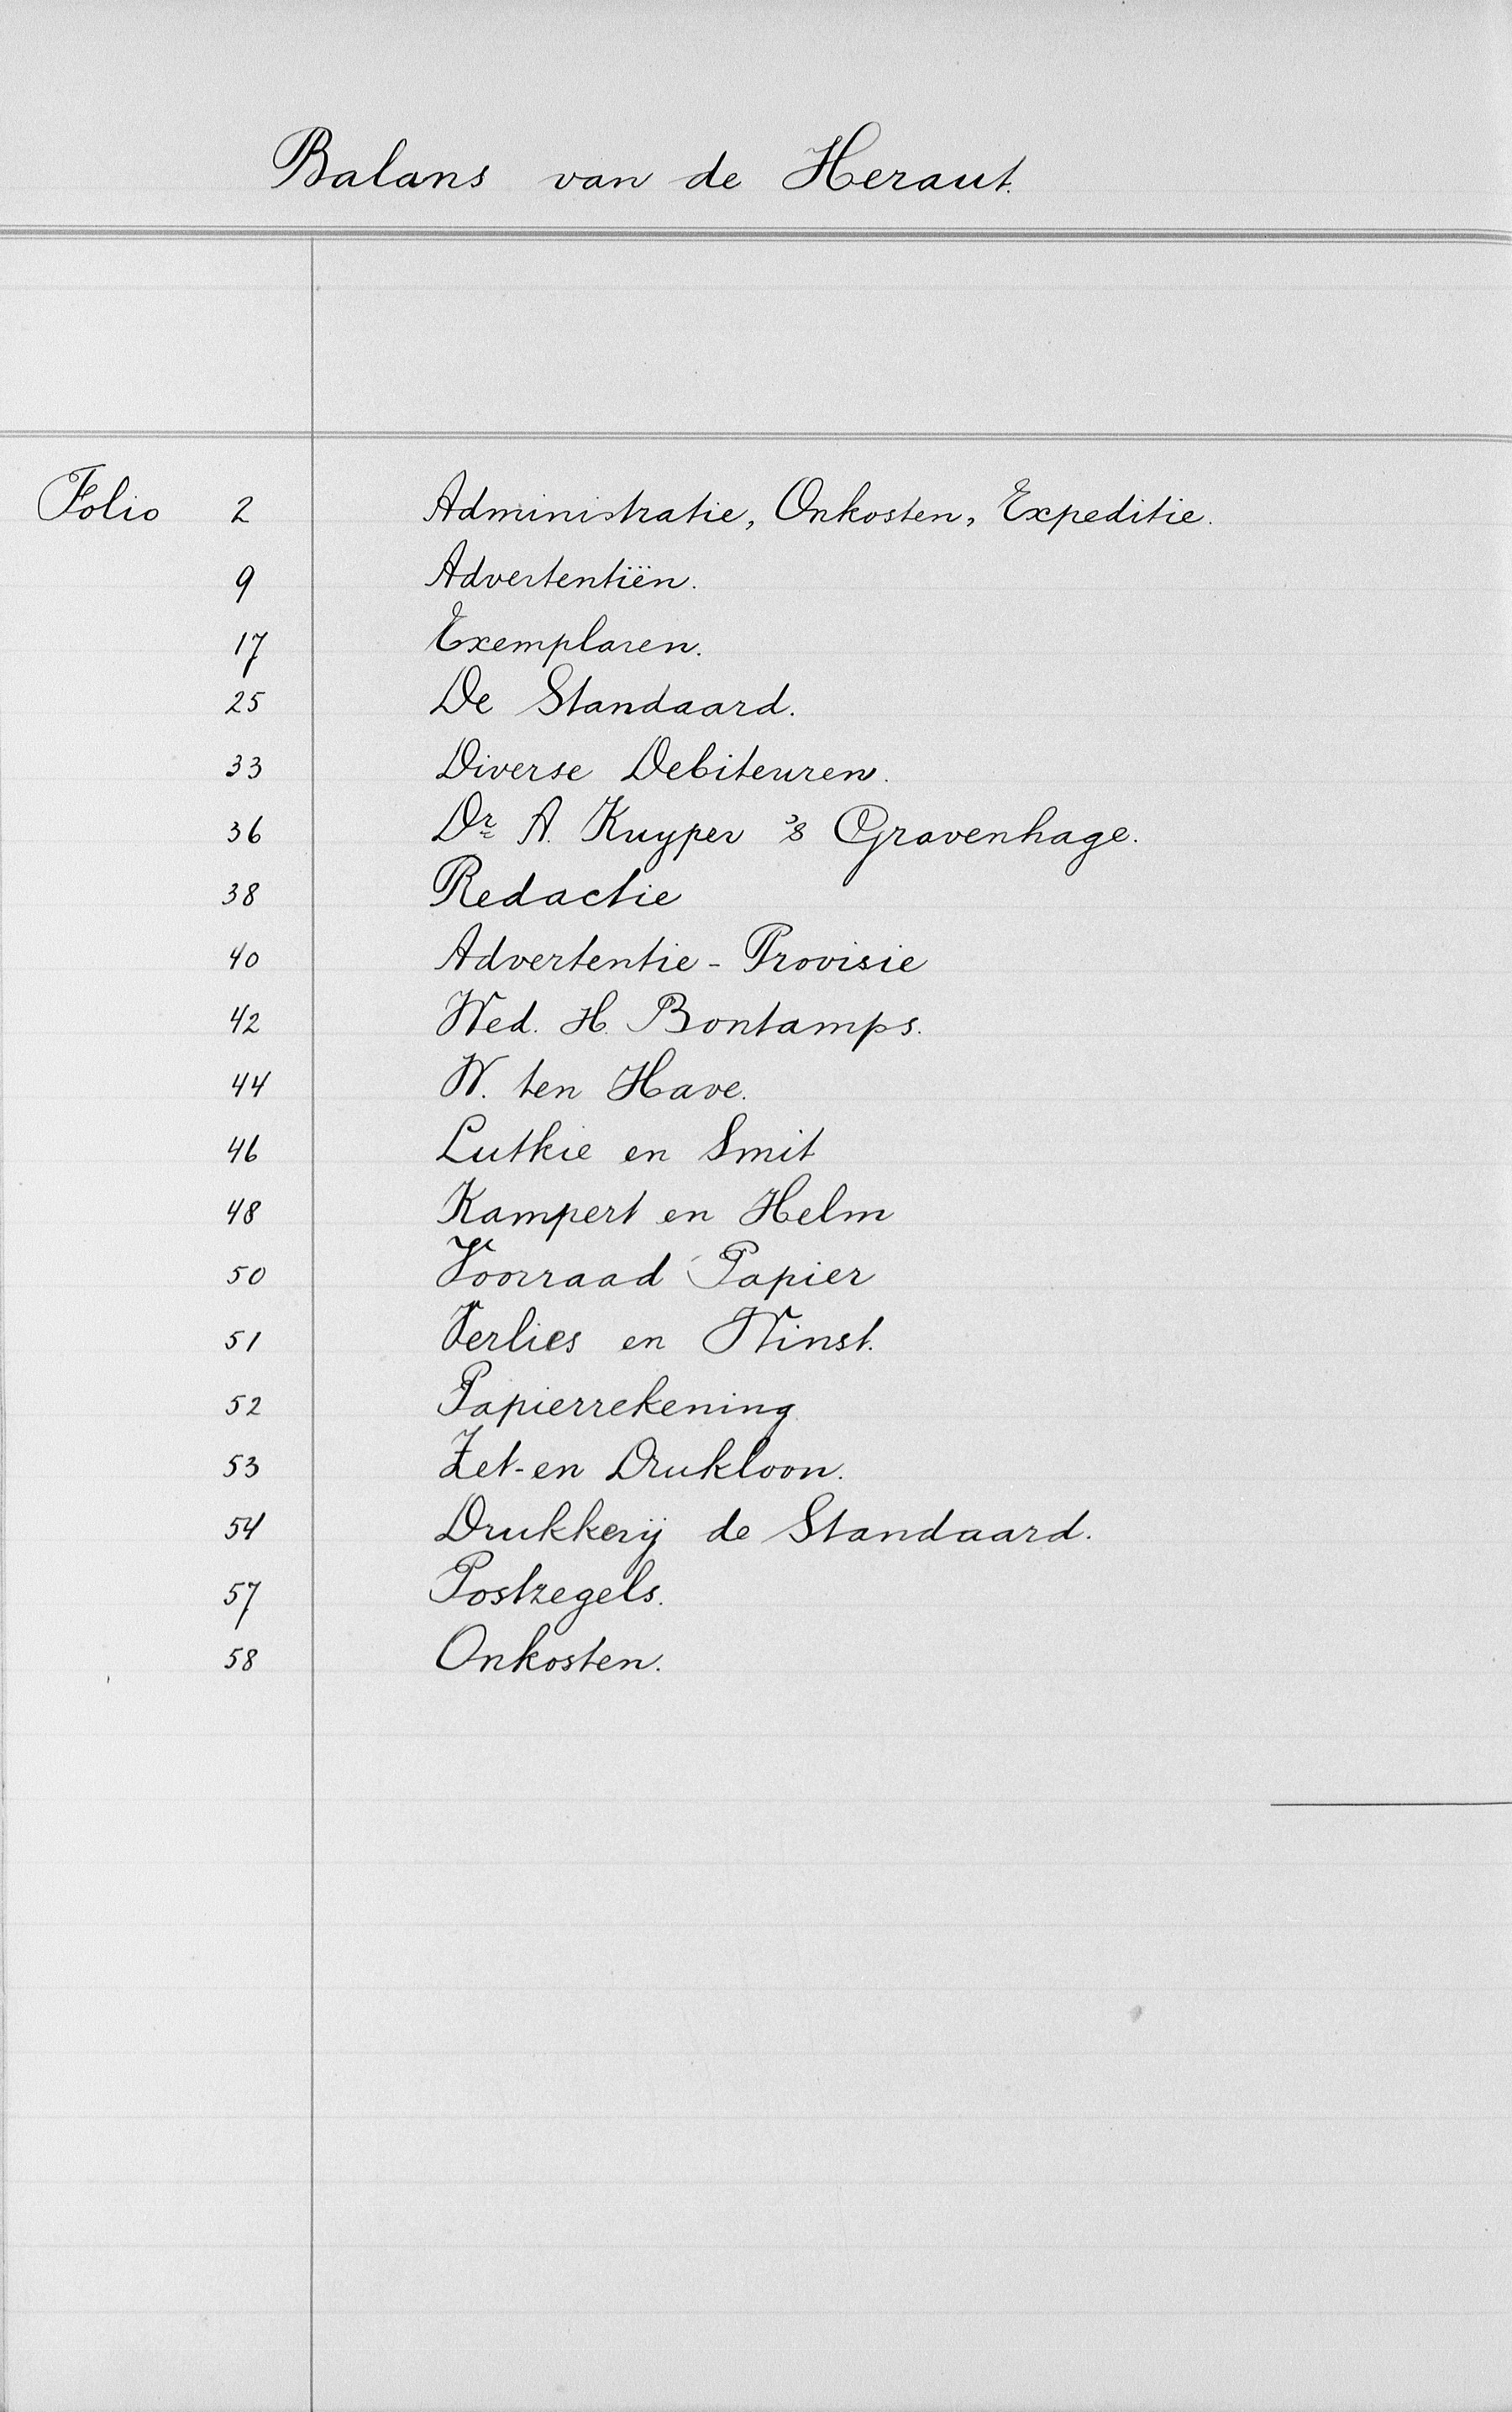 Balans van de Heraut.
Folio 2 Administratie, Onkosten, Expeditie.
9 Advertentiën.
17 Exemplaren.
25 De Standaard.
33 Diverse Debiteuren.
36 Dr A. Kuyper 's Gravenhage.
38 Redactie
40 Advertentie - Provisie
42 Wed. H. Bontamps.
44 W. ten Have.
46 Lutkie en Smit
48 Kampert en Helm
50 Voorraad Papier
51 Verlies en Winst.
52 Papierrekening
53 Zet- en Drukloon.
54 Drukkerij de Standaard.
57 Postzegels.
58 Onkosten.